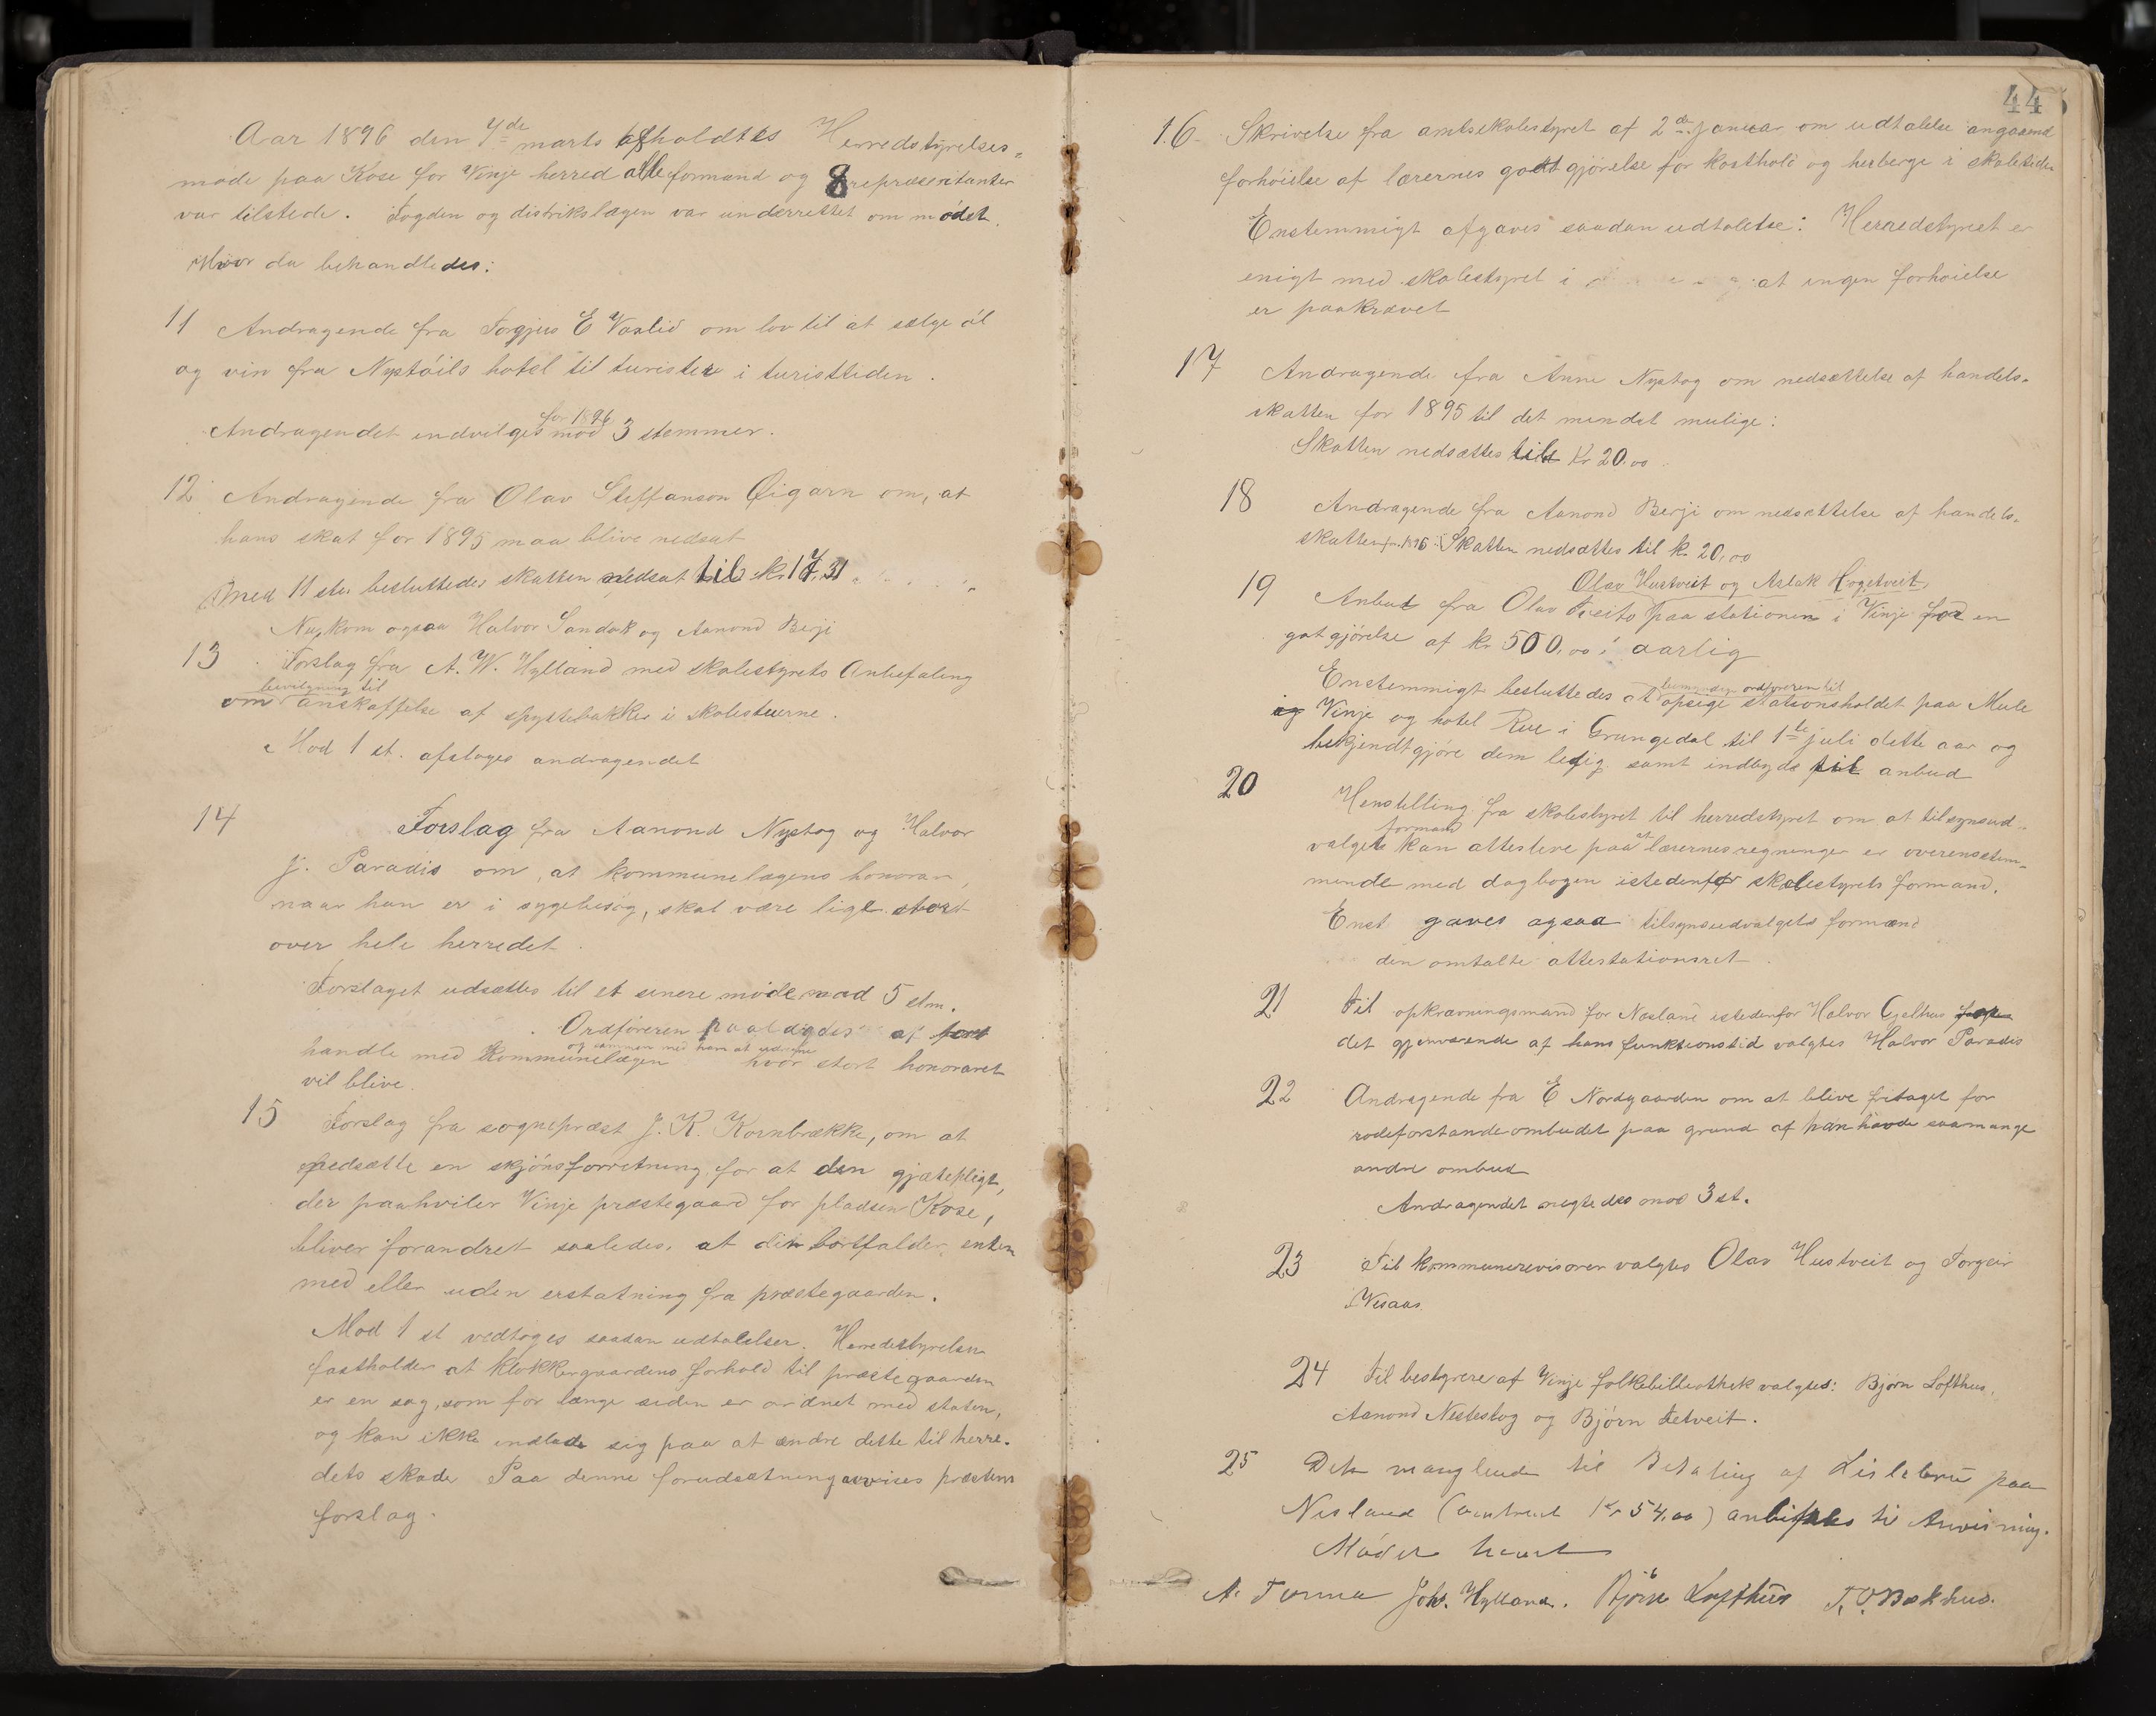 Aar 1896 den 4de marts afholdtes Herredstyrelses-
møde paa Kose for Vinje herred alle formænd og 8 repræsentanter
var tilstede. Fogden og distrikslægen var underrettet om mødet.
Hvor da behandledes:
11 Andragende fra Torgjus E Vaslid om lov til at sælge øl
og vin fra Nystøils hotel til turister i turisttiden.
for 1896
Andragendet indvilges mod 3 stemmer.
12 Andragende fra Olav Steffanson Øigarn om, at
hans skat for 1895 maa blive nedsat
Med 11 ste. besluttedes skatten nedsat til kr 17,31
Nu kom ogsaa Halvor Sandok og Aanond Berji
13 Forslag fra A. W. Hylland med skolestyrets Anbefaling
bevilgning til
om anskaffelse af spyttebakker i skolestuerne.
Mod 1 st. afsloges andragendet
14 Forslag fra Aanond Nystog og Halvor
J. Paradis om, at kommunelægens honorar,
naar han er i sygebesøg, skal være lige stort
over hele herredet.
Forslaget udsættes til et senere møde mod 5 stm.
Ordføreren paalægdes at for
og sammen med ham at
handle med Kommunelægen hvor stort honoraret
vil blive.
15 Forslag fra sognepræst J. K. Kornbrække, om at
nedsætte en skjønsforretning, for at den gjætepligt,
der paahviler Vinje præstegaard for pladsen Kose,
bliver forandret saaledes, at den bortfalder, enten
med eller uden erstatning fra præstegaarden.
Mod 1 st vedtoges saadan udtalelser. Herredstyrelsen
fastholder at klokkergaardens forhold til præstegaarden
er en sag, som for længe siden er ordnet med staten,
og kan ikke indlade sig paa at ændre dette til herre-
dets skade Paa denne forudsætning avvises præstens
forslag.
44
16. Skrivelse fra amtsskolestyret af 2de januar om udtalelse angaaend
forhøielse af lærernes godtgjørelse for kosthold og herberge i skoletiden
Enstemmigt afgaves saadan udtalelse: Herredstyret er
enigt med skolestyret i at ingen forhøielse
er paakrævet
17 Andragende fra Anne Nystog om nedsættelse af handels-
skatten for 1895 til det mindst mulige:
Skatten nedsættes til Kr 20.00
18 Andragende fra Aanond Berji om nedsættelse af handels-
skatten for 1896. Skatten nedsættes til kr. 20,00
Olav Hustveit og Aslak Høgetveit
19 Anbud fra Olav Tveito paa stationen i Vinje for en
gotgjørelse af kr 500,00 aarlig
ordføreren til
Enstemmigt besluttedes at opsige stationsholdet paa Mule
og Vinje og hotel Rue i Grungedal til 1ste juli dette aar og
bekjendtgjøre dem ledig samt indbyde til anbud
20 Henstilling fra skolestyret til herredstyret om at tilsynsud-
formand at
valgets kan attestere paa lærernes regninger er overenstem-
mende med dagbogen istedenfor skolestyrets formand.
Enst gaves ogsaa tilsynsudvalgets formænd
den omtalte attestationsret.
21 Til opkrævningsmand for Næsland istedenfor Halvor Gjelhus for
det gjenværende af hans funktionstid valgtes Halvor Paradis
22 Andragende fra E Nordgaarden om at blive fritaget for
rodeforstandeombudet paa grund af han havde saamange
andre ombud
Andragendet negtedes mod 3 st.
23 Til kommunerevisorer valgtes Olav Hustveit og Torgeir
Vesaas.
24 Til bestyrere af Vinje folkebibliothek valgtes: Bjørn Lofthus,
Aanond Nestestog og Bjørn Tetveit.
25 Det manglende til Betaling af Lislebru paa
Nesland (omtrent Kr 54.00) anbefales til Anvisning.
Mødet hævet
A. Torma Joh. Hylland. Bjørn Lofthus T. O. Bækhus.